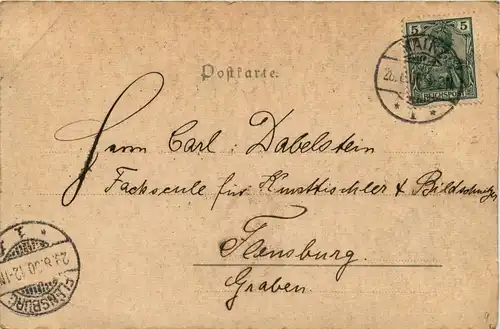 5 5
MAINZ
REICHSPOST
Postkarte.
Herrn Carl. Dabelstein
Fachscule für Kunsttischler & Bildschnitzer
Flensburg.
Graben.
FLENSBURG
29.8.00.12-1N
* 1 *